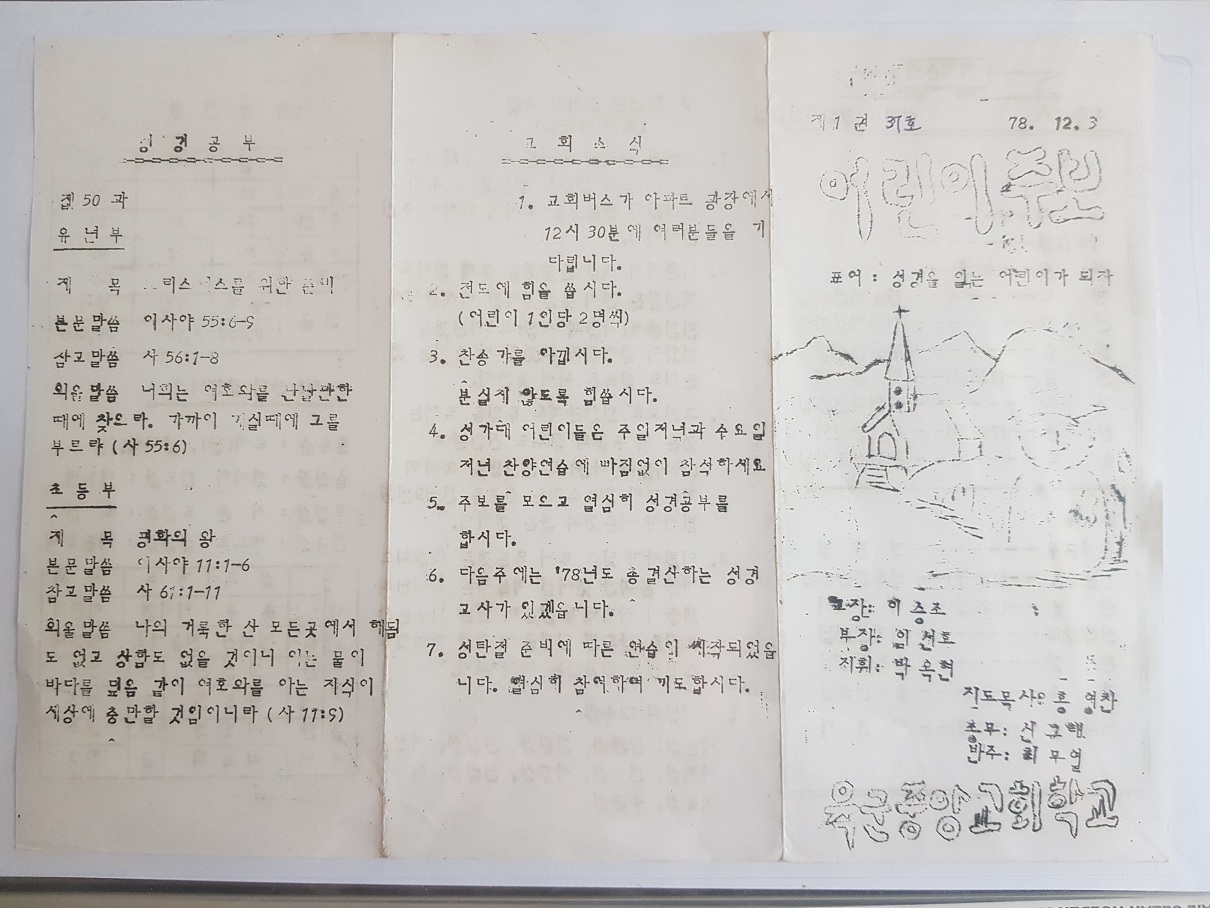 성경공부
제 50 과
유년부
제 목 그리스마스를 위한 준비
본문말씀 이사야 55:6-9
참고말씀 사 56:1-8
외울말씀 너희는 여호와를 만날만한
때에 찾으라. 가까이 계실때에 그를
부르라 (사 55:6)
초등부
제 목 평화의 왕
본문말씀 이사야 11:1-6
참고말씀 사 61:1-11
외울말씀 나의 거룩한 산 모든곳에서 해됨
도 없고 상함도 없을 것이니 이는 물이
바다를 덮음 같이 여호와를 아는 지식이
세상에 충만할 것임이니라 (사 11:9)
교회소식
1. 교회버스가 아파트 광장에서
12시 30분에 여러분들을 기
다립니다.
2. 전도에 힘을 씁시다.
(어린이 1인당 2명씩)
3. 찬송가를 아낍시다.
분실치 않도록 힘씁시다.
4. 성가대 어린이들은 주일저녁과 수요일
저녁 찬양연습에 빠짐없이 참석하세요
5. 주보를 모으고 열심히 성경공부를
합시다.
6. 다음주에는 '78년도 총결산하는 성경
고사가 있겠읍니다.
7. 성탄절 준비에 따른 연습이 시작되었읍
니다. 열심히 참여하며 기도합시다.
제 1 권 37호 78. 12. 3
어린이주보
표어 : 성경을 읽는 어린이가 되자
교장: 이종조
부장: 임선호
지휘: 박옥현
지도목사: 홍영찬
총무: 신
반주: 최무열
육군중앙교회학교